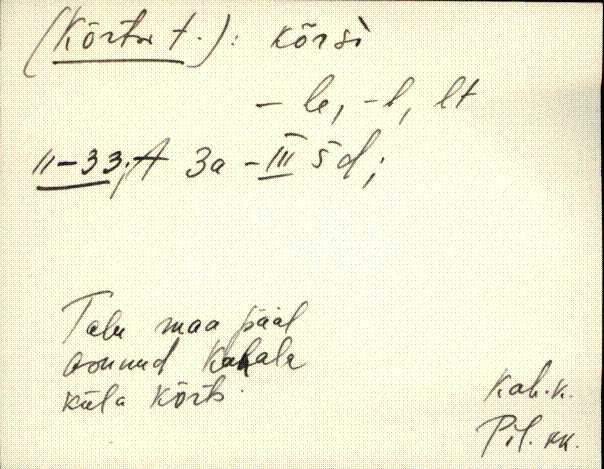 (Kõrtsi t.): kõrsi
- le, -l, lt
II-33; A 3a - III 5 d;
Talu maa pääl
asunud Kahala
küla Kõrts.
Kah. k.
Pil. kk.